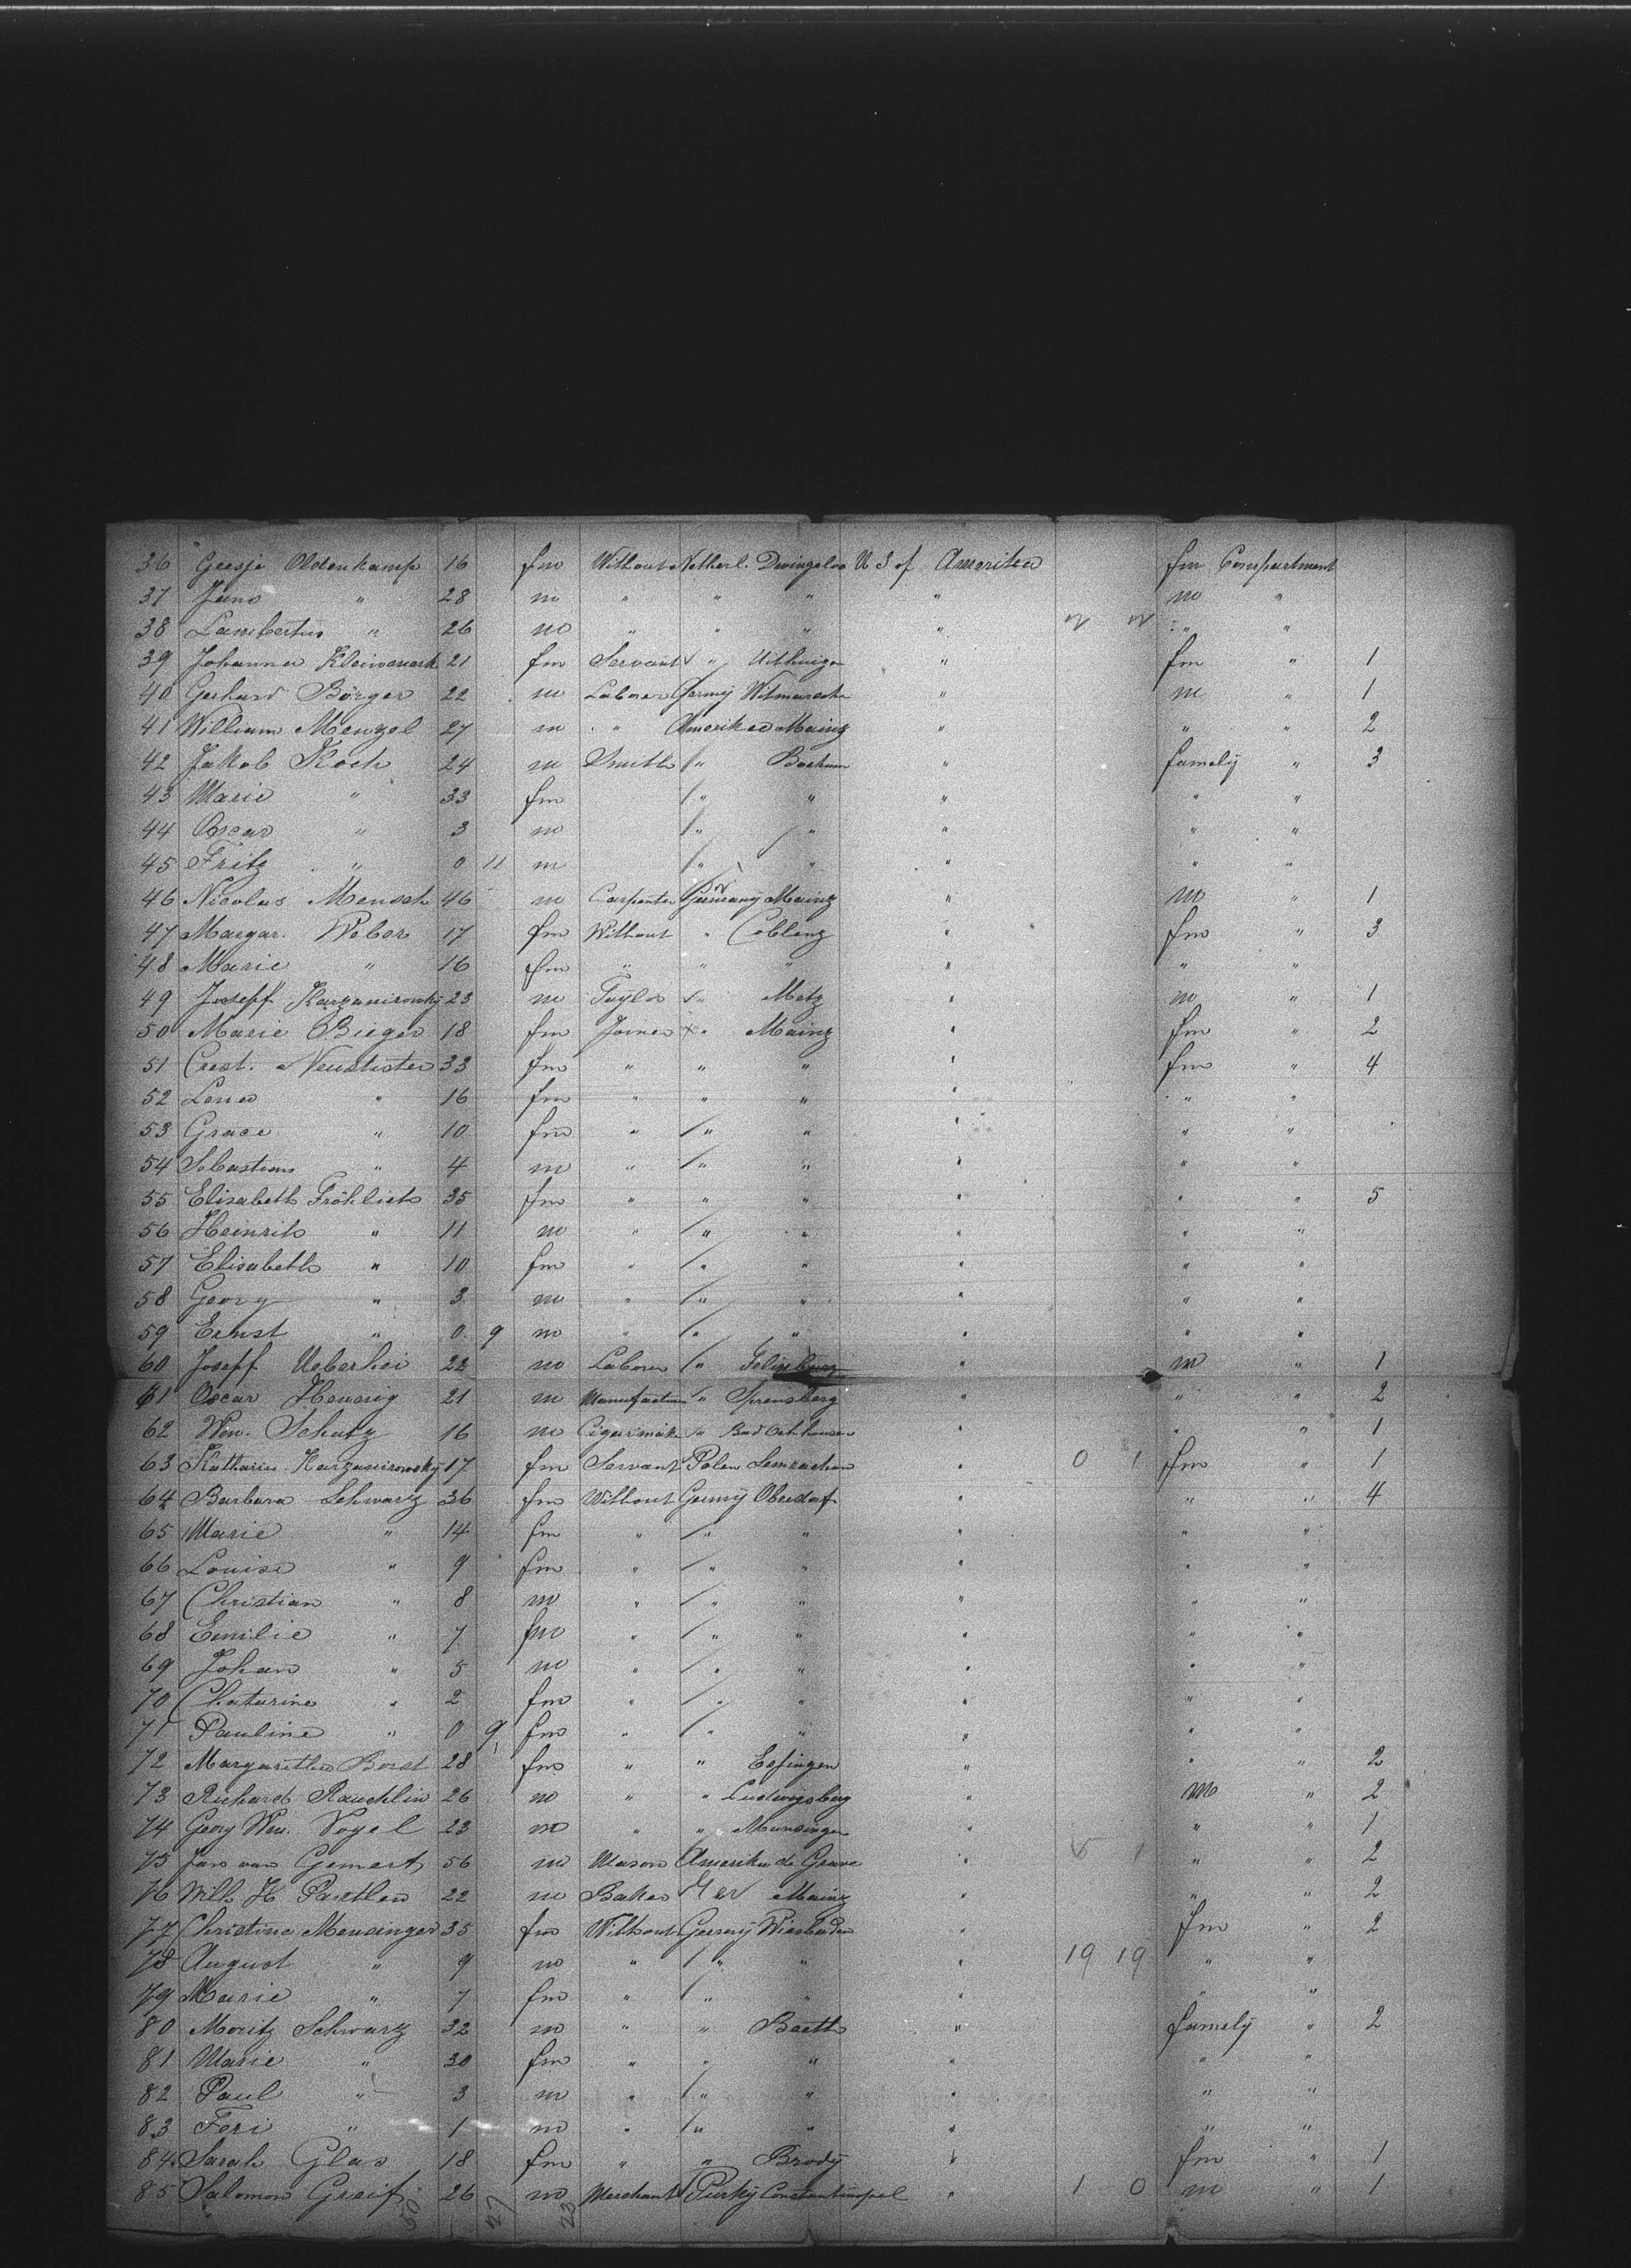 36 Geesje Oldenkamp 16 fm Without Netherl. Dwingeloo U S of Amerika fm Compartment
37 Jans " 28 m " " " " m "
38 Lambertus " 26 m " " " " " "
39 Johanna 21 fm Servant " Uithuizen " fm " 1
40 Gerhard Börger 22 m Laborer Germy " m " 1
41 William Menzel 27 m " Amerika Mainz " " " 2
42 Jakob Koch 24 m Smith " Bochum " famely " 3
43 Marie " 33 fm " " " " "
44 Oscar " 3 m " " " " "
45 Fritz " 0 11 m " " " " "
46 Nicolas Mensch 46 m Carpenter Germany Mainz " m " 1
47 Margar. Weber 17 fm Without " Coblenz " fm " 3
48 Marie " 16 fm " " " " " "
49 Joseff 23 m Taylor " Metz " m " 1
50 Marie Bieger 18 fm Joiner " Mainz " fm " 2
51 Crest. 33 fm " " " " fm " 4
52 Lena " 16 fm " " " " " "
53 Grace " 10 fm " " " " " "
54 Sebastian " 4 m " " " " " "
55 Elisabeth Fröhlich 35 fm " " " " " " 5
56 Heinrih " 11 m " " " " " "
57 Elisabeth " 10 fm " " " " " "
58 Georg " 3 m " " " " " "
59 Ernst " 0 9 m " " " " " "
60 Joseff Ueberhei 22 m Laborer " " m " 1
61 Oscar Hennig 21 m " Spremberg " " " 2
62 Wm. Schutz 16 m Cigarmak " Bad " " " 1
63 17 fm Servant Polen " 0 1 fm " 1
64 Barbara Schwarz 36 fm Without Germy Oberdorf " " " 4
65 Marie " 14 fm " " " " " "
66 Louise " 9 fm " " " " " "
67 Christian " 8 m " " " " " "
68 Emilie " 7 fm " " " " " "
69 Johan " 5 m " " " " " "
70 Chaturine " 2 fm " " " " " "
71 Pauline " 0 9 fm " " " " " "
72 Margarethe Borst 28 fm " " " " " 2
73 Richard 26 m " " Ludwigsberg " m " 2
74 Georg Wm. Vogel 23 m " " Munsingen " " " 1
75 Jan van Gemert 56 m Mason Amerika de Grave " " " 2
76 Wilh H 22 m Baker Ger Mainz " " " 2
77 Christine Mensinger 35 fm Without Germy Wiesbaden " fm " 2
78 August " 9 m " " " " 19 19 " "
79 Marie " 7 fm " " " " " "
80 Moritz Schwarz 32 m " " Baeth " famely " 2
81 Marie " 30 fm " " " " " "
82 Paul " 3 m " " " " " "
83 Feri " 1 m " " " " " "
84 Sarah Glas 18 fm " " Brody " fm " 1
85 Salomon Greif 26 m Merchant Turky Constantinopel " 1 0 m " 1
27 23